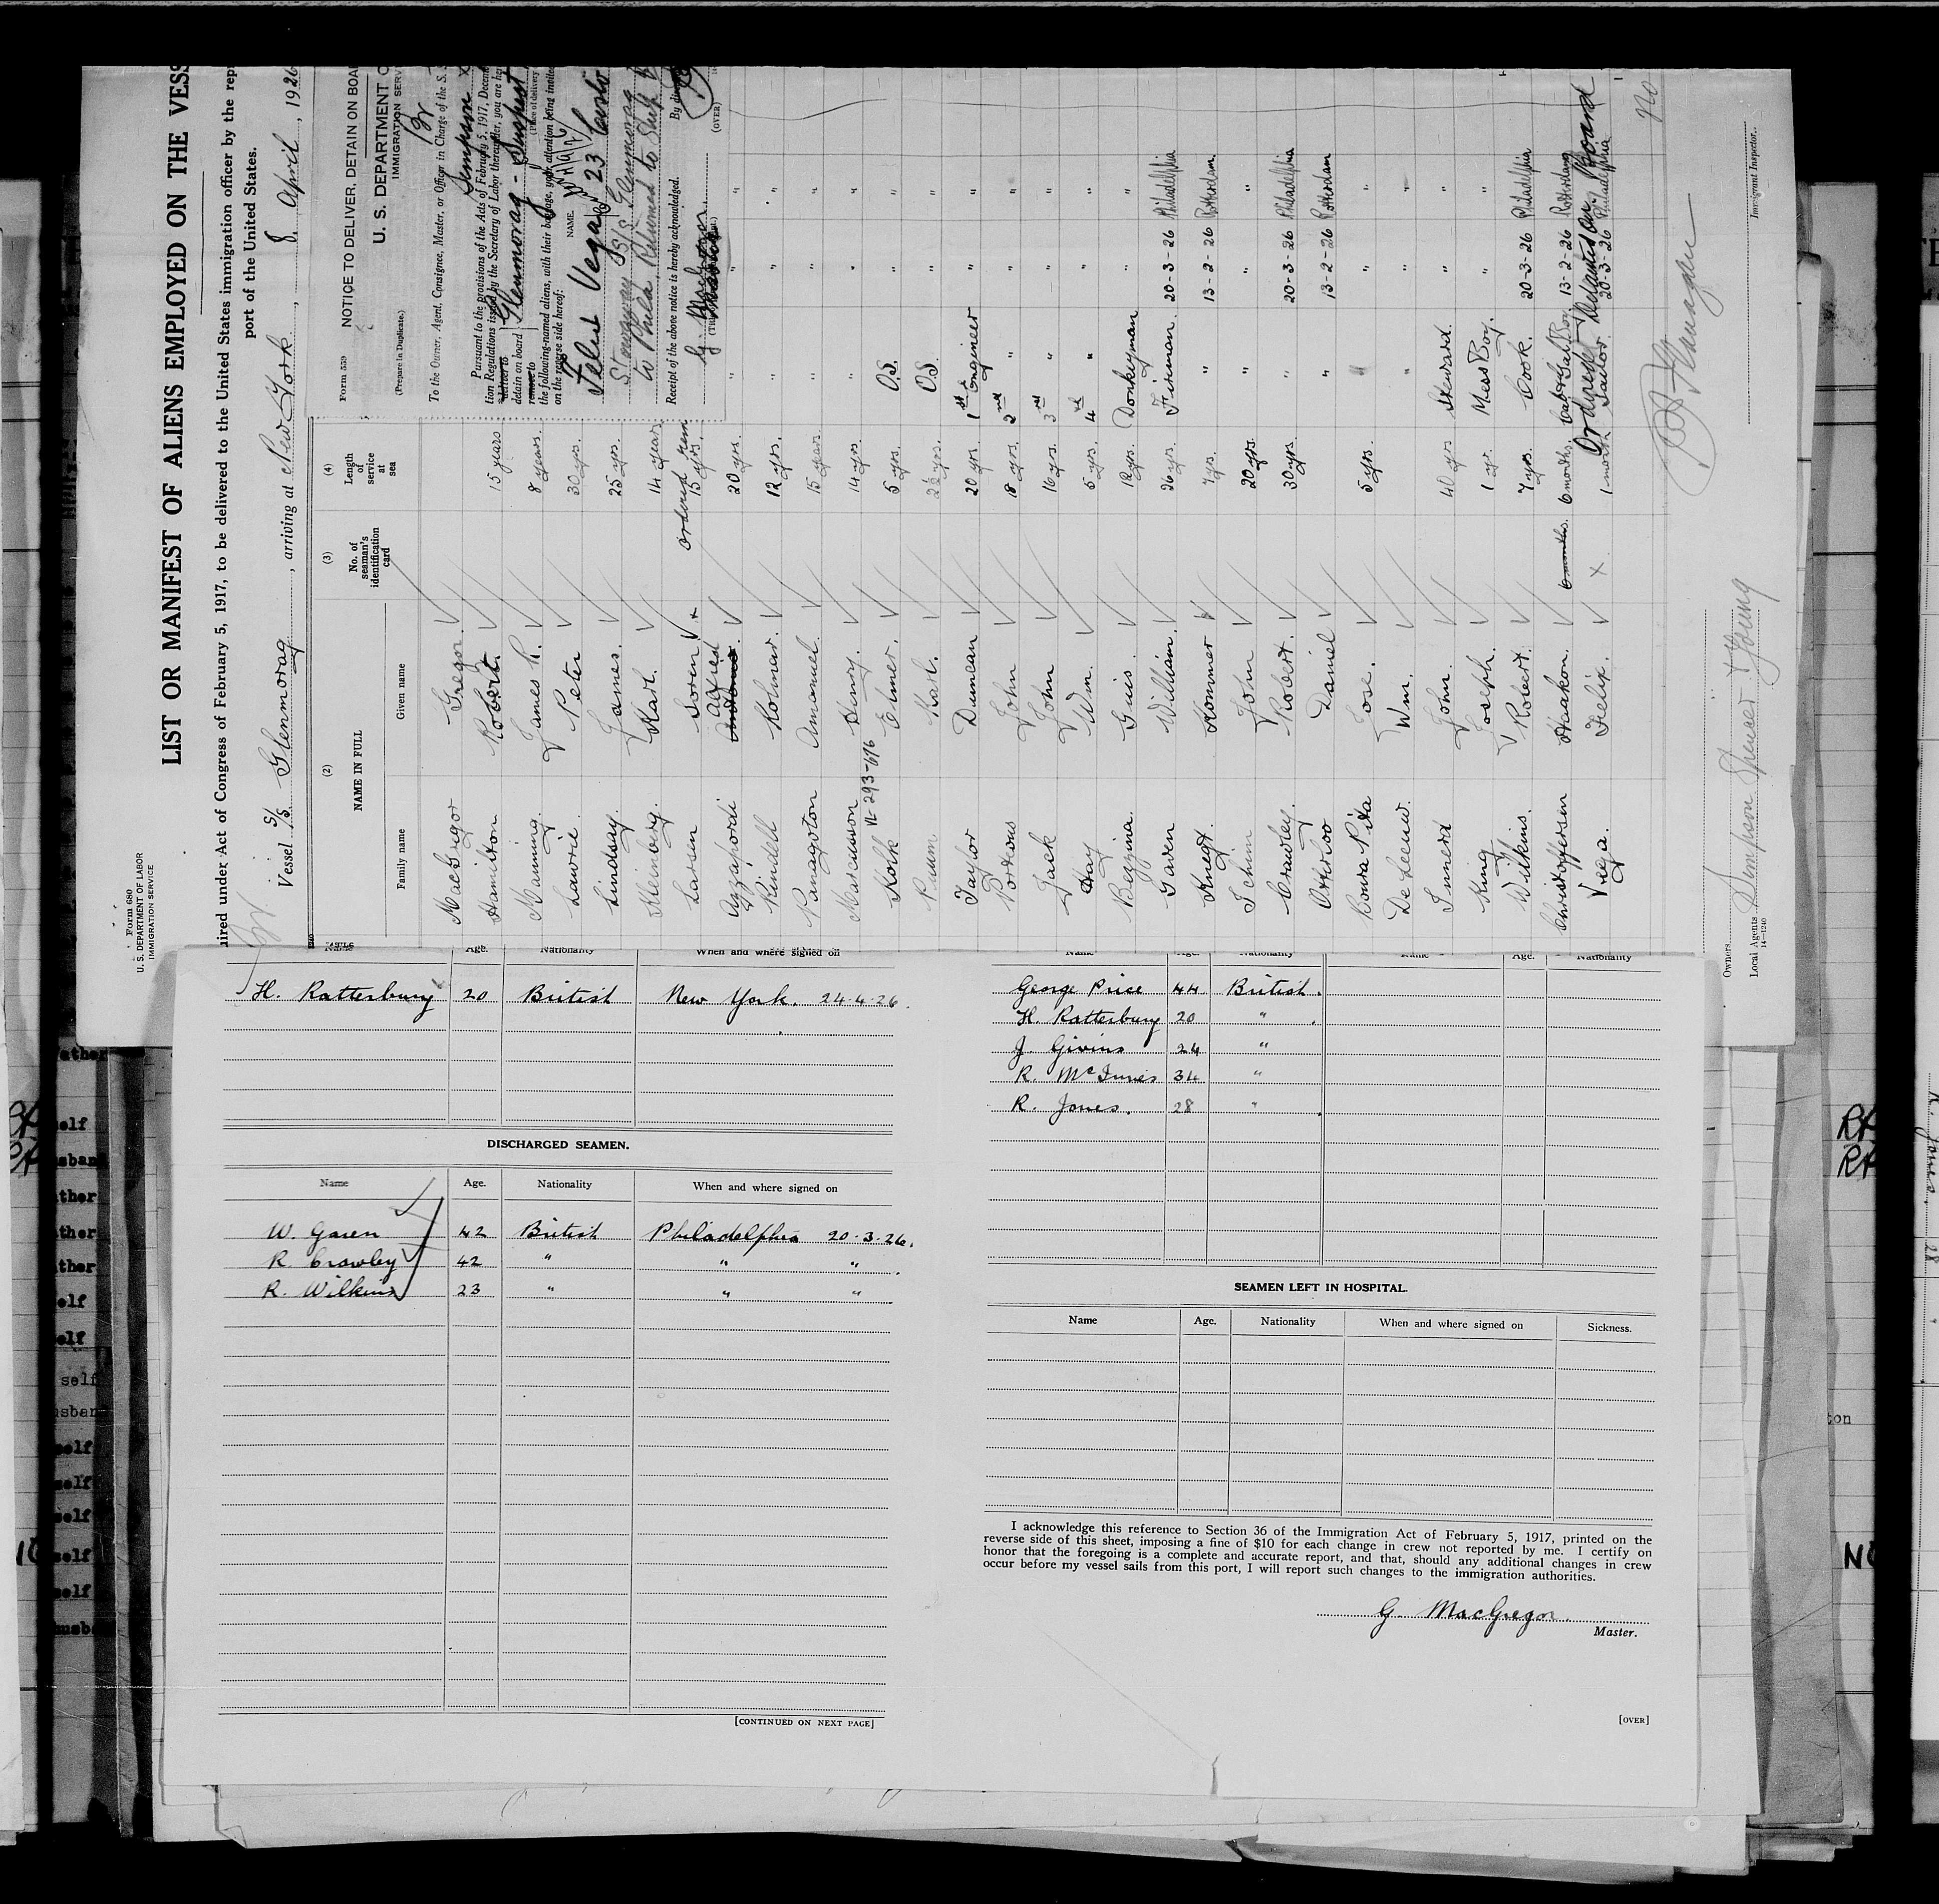 Form 680
U. S. DEPARTMENT OF LABOR
IMMIGRATION SERVICE
LIST OR MANIFEST OF ALIENS EMPLOYED ON THE VESS
uired under Act of Congress of February 5, 1917, to be delivered to the United States immigration officer by the rep
port of the United States.
Vessel S/S. Glenmorag, arriving at New York, 8. April, 1926
(2)
NAME IN FULL
Family name
Given name
(3)
No. of seaman's identification card
(4)
Length of service at sea
MacGregor Gregor.
Hamilton Robert. 15 years
Manning. James R. 8 years.
Lawrie. Peter 30 yrs.
Lindsay. James. 25 yrs.
Kleinberg. Karl. 14 years.
Larsin Soren ordered rem 15 yrs.
Azzapardi 20 yrs. " " "
Rindell Kolmar. 12 yrs. " " "
Panagoton Amanuel. 15 years. " " "
Marcusson Henry. 14 yrs. " " "
Kolk Elmer. 5 yrs. O.S. " "
Ruum Karl. 2½ yrs. O.S. " "
Taylor Duncan 20 yrs. 1st Engineer " "
Porteous John 18 yrs. 2nd " " "
Jack John 16 yrs. 3rd " " "
Hay Wm. 5 yrs. 4th " " "
Bezzina. Guis. 12 yrs. Donkeyman " "
Gaven William. 26 yrs. Fireman. 20-3-26 Philadelphia
Knegt. Kommer 7 yrs. " 13-2-26 Rotterdam.
Ichim John 20 yrs. " " "
Crawley. Robert. 30 yrs. " 20-3-26 Philadelphia
Otterloo Daniel " 13-2-26 Rotterdam
Bouza Pita Jose. 5 yrs. " " "
De Leeuw. Wm. " " "
John. 40 yrs Steward. " "
King Joseph. 1 yr. Mess Boy. " "
Wilkins. Robert. 7 yrs. Cook. 20-3-26 Philadelphia
Christoffersen Haakon. 6 months. 6 months. 13-2-26 Rotterdam
Vega. Felix. X 1 month Sailor. 20-3-26 Philadelphia
Ordered detained on board
No
Owners
Local Agents Simpson Spence & Young
14—1240
Immigrant Inspector.
Form 559
NOTICE TO DELIVER, DETAIN ON BOA
(Prepare in Duplicate.)
U. S. DEPARTMENT O
IMMIGRATION SERV
To the Owner, Agent, Consignee, Master, or Officer in Charge of the S. S.
Simpson
Pursuant to the provisions of the Acts of February 5, 1917, Decem
tion Regulations issued by the Secretary of Labor thereunder, you are her
deliver to
detain on board Glenmorag -
remove to
the following-named aliens, with their baggage, your attention being invited
on the reverse side hereof:
NAME.
Felix Vega 23
Stowaway SS Glenmorag
to Phila. Returned to Ship
Receipt of the above notice is hereby acknowledged.
By dire
G MacGregor.
(OVER)
Name Age. Nationality When and where signed on
H. Ratterbury 20 British New York. 24-4-26.
DISCHARGED SEAMEN.
Name Age. Nationality When and where signed on
W. Gaven 42 British Philadelphia 20-3-26.
R. Crawley 42 " " "
R. Wilkins 23 " " "
[CONTINUED ON NEXT PAGE]
Name Age. Nationality Name Age. Nationality
George Price 44 British.
H. Ratterbury 20 "
J. Givins 24 "
R. McInnes 34 "
R. Jones. 28 "
SEAMEN LEFT IN HOSPITAL.
Name Age. Nationality When and where signed on Sickness.
I acknowledge this reference to Section 36 of the Immigration Act of February 5, 1917, printed on the
reverse side of this sheet, imposing a fine of $10 for each change in crew not reported by me. I certify on
honor that the foregoing is a complete and accurate report, and that, should any additional changes in crew
occur before my vessel sails from this port, I will report such changes to the immigration authorities.
G. MacGregor.
Master.
[OVER]